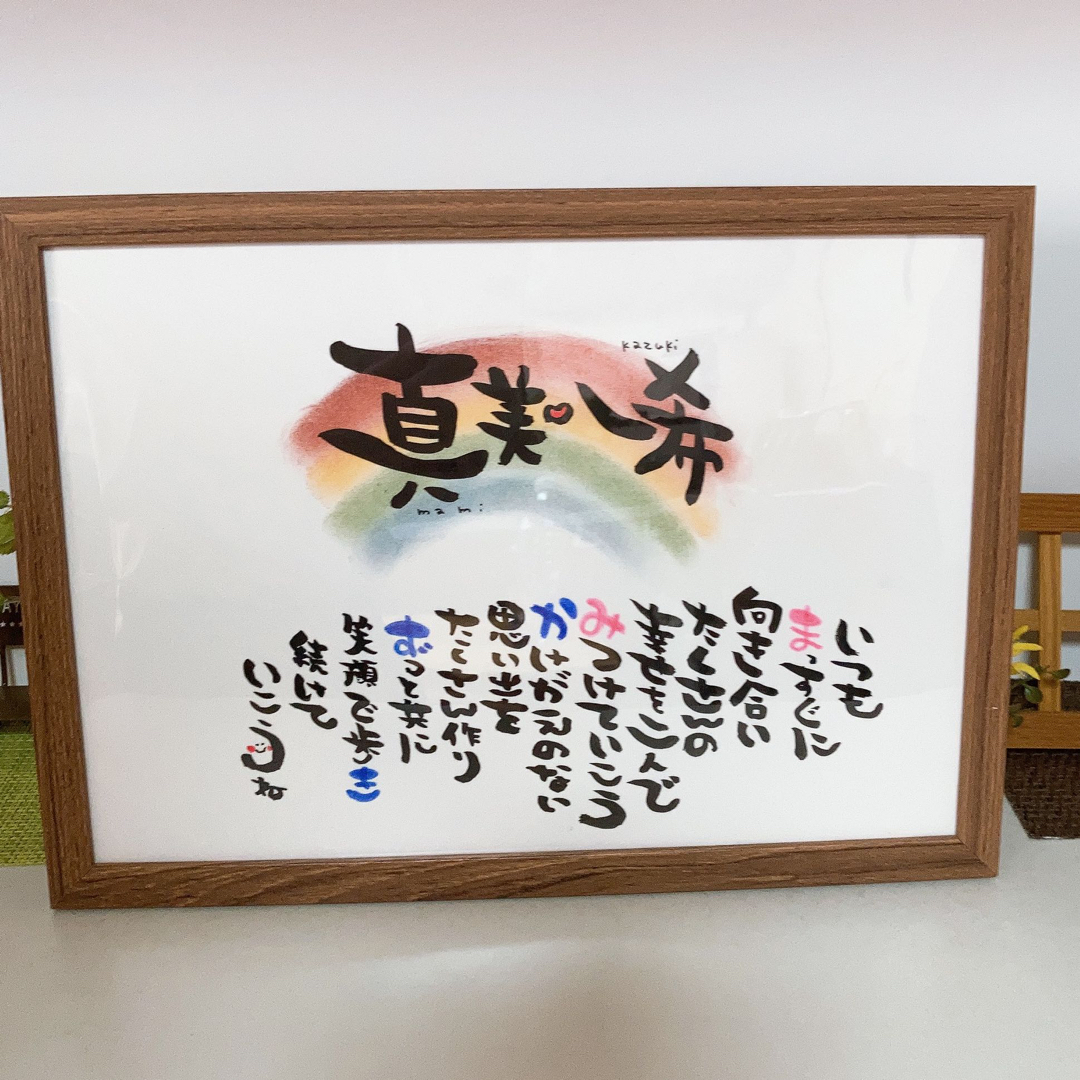 kazuki
真美 一希
mami
いつも
まっすぐに
向き合い
たくさんの
幸せをしんで
みつけていこう
かけがえのない
思い出を
たくさん作り
ずっと共に
笑顔で歩き
続けて
いこうね